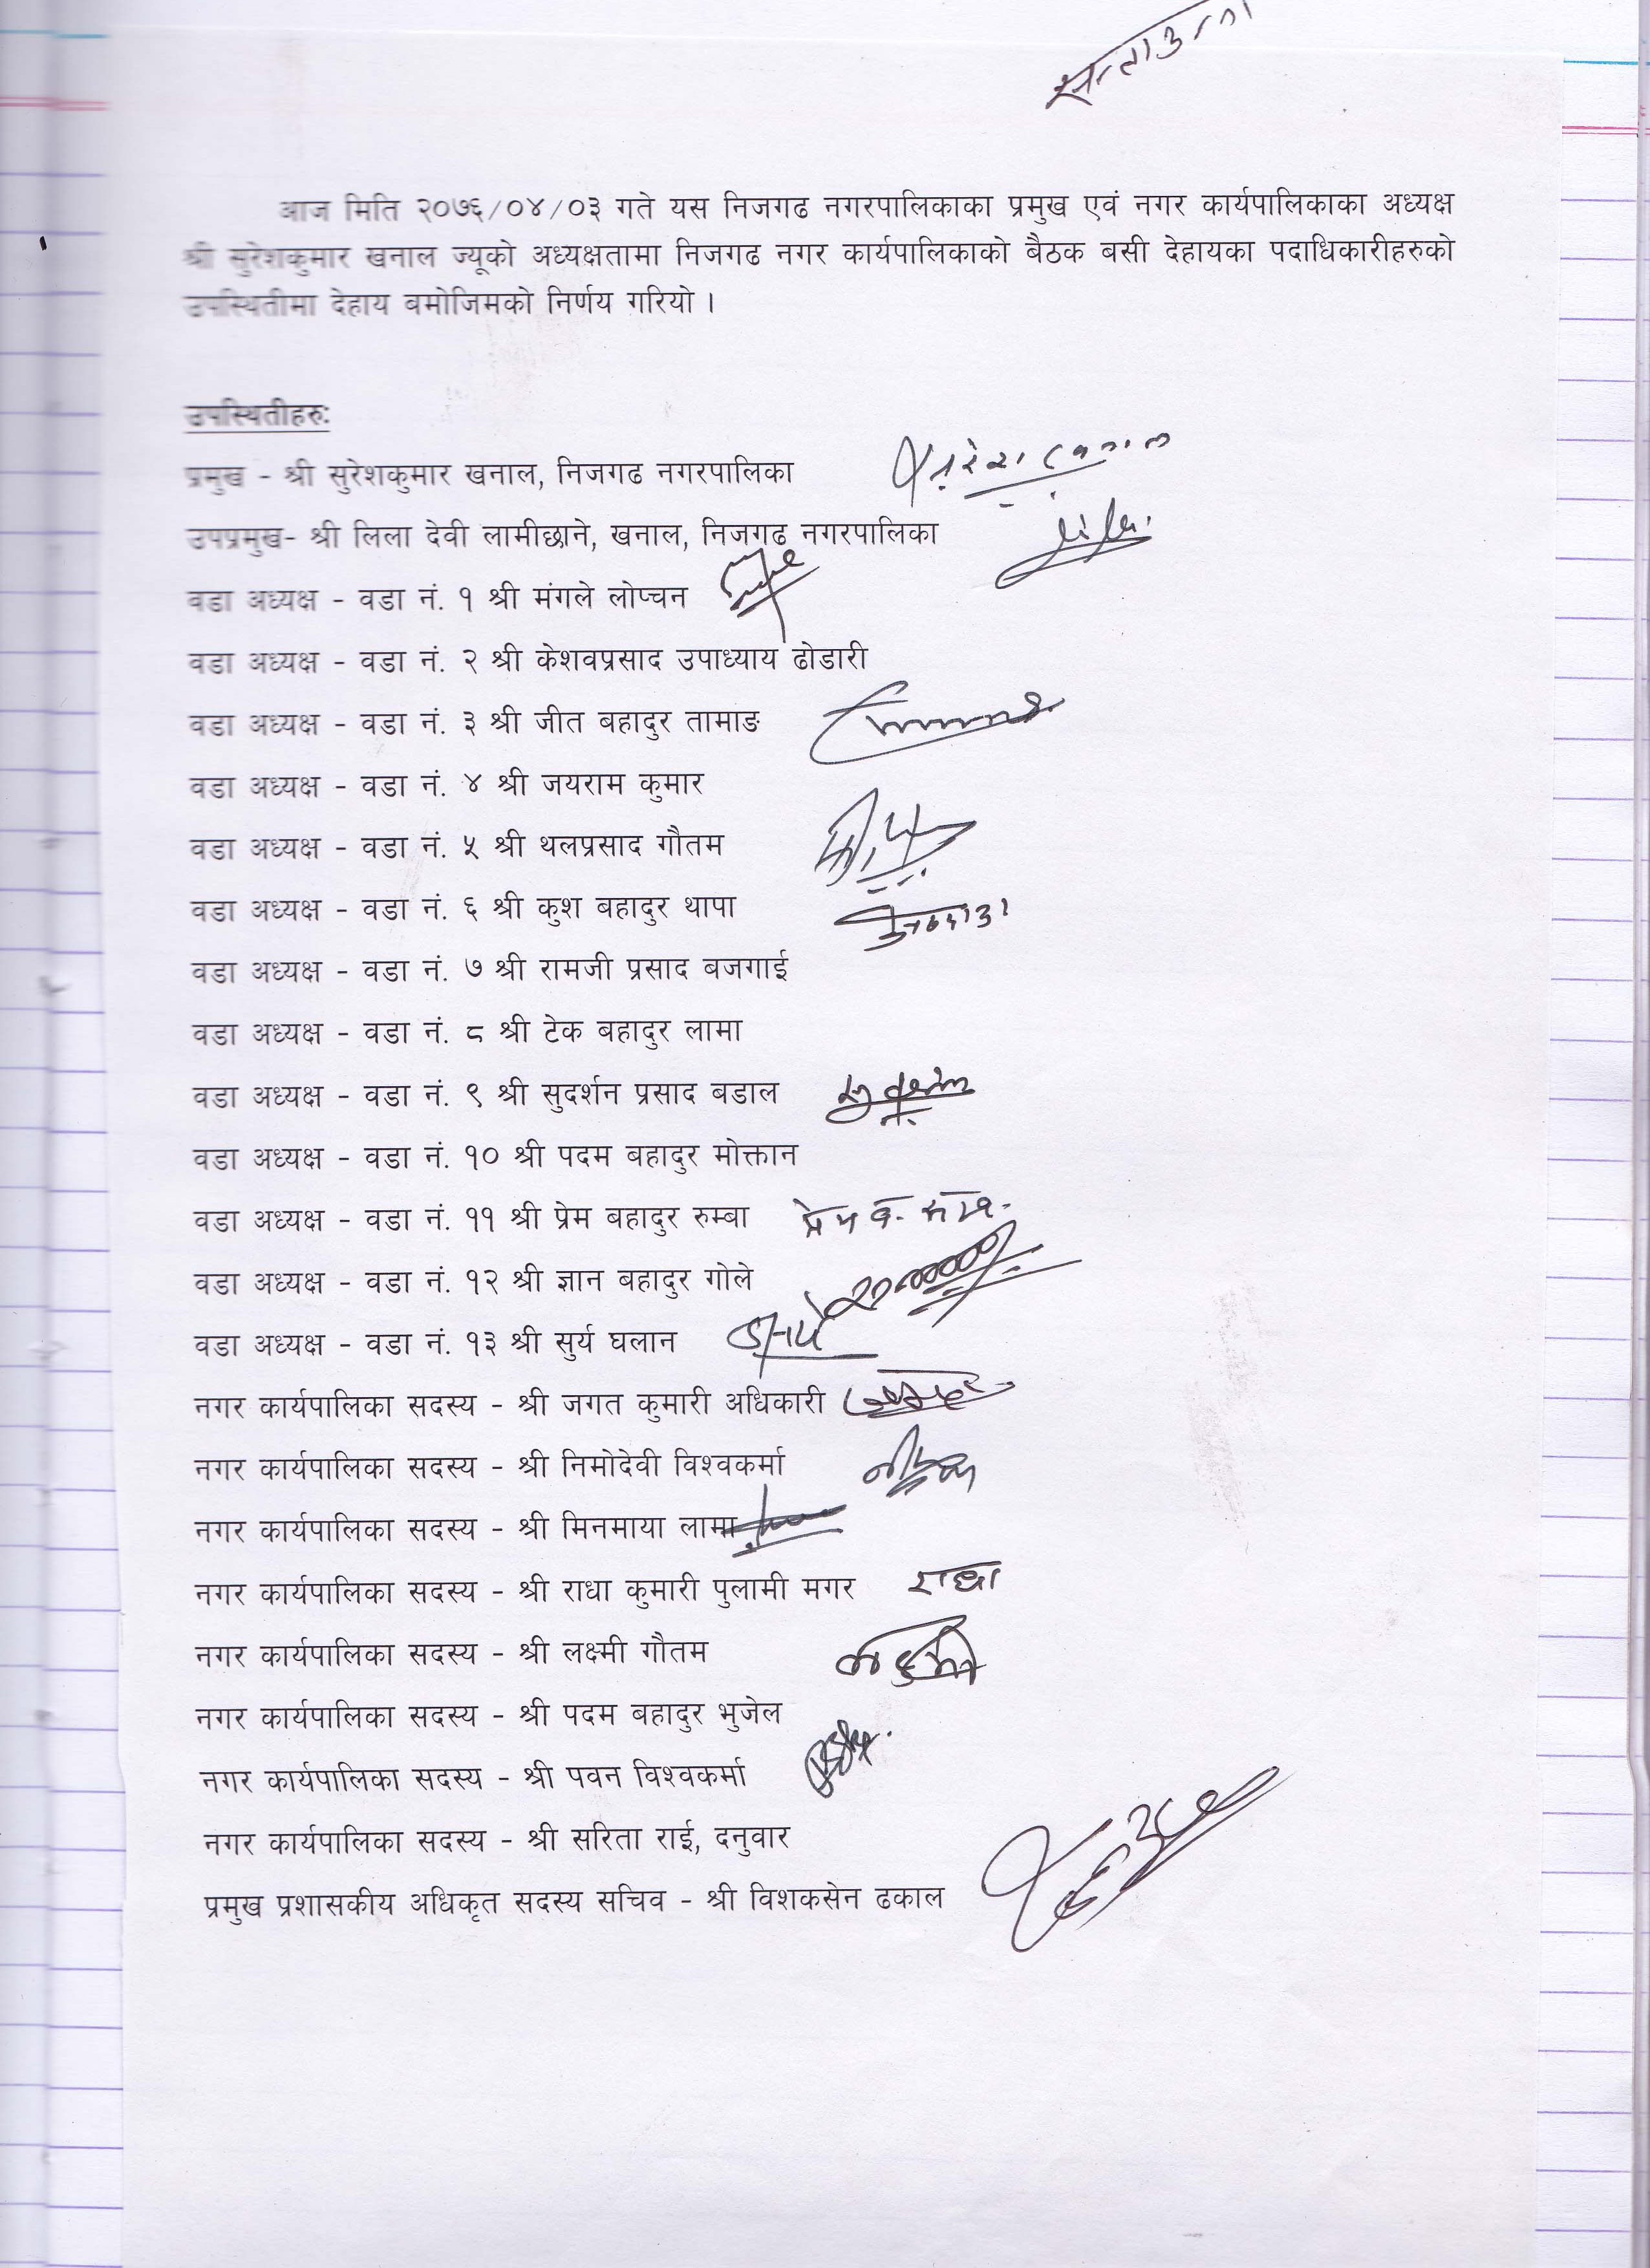 आज मिति २०७६/०४/०३ गते यस निजगढ नगरपालिकाका प्रमुख एवं नगर कार्यपालिकाका अध्यक्ष
श्री सुरेशकुमार खनाल ज्यूको अध्यक्षतामा निजगढ नगर कार्यपालिकाको बैठक बसी देहायका पदाधिकारीहरुको
उपस्थितीमा देहाय बमोजिमको निर्णय गरियो ।
उपस्थितीहरु:
प्रमुख - श्री सुरेशकुमार खनाल, निजगढ नगरपालिका
उपप्रमुख- श्री लिला देवी लामीछाने, खनाल, निजगढ नगरपालिका
वडा अध्यक्ष - वडा नं. १ श्री मंगले लोप्चन
वडा अध्यक्ष - वडा नं. २ श्री केशवप्रसाद उपाध्याय ढोडारी
वडा अध्यक्ष - वडा नं. ३ श्री जीत बहादुर तामाङ
वडा अध्यक्ष - वडा नं. ४ श्री जयराम कुमार
वडा अध्यक्ष - वडा नं. ५ श्री थलप्रसाद गौतम
वडा अध्यक्ष - वडा नं. ६ श्री कुश बहादुर थापा
वडा अध्यक्ष - वडा नं. ७ श्री रामजी प्रसाद बजगाई
वडा अध्यक्ष - वडा नं. ८ श्री टेक बहादुर लामा
वडा अध्यक्ष - वडा नं. ९ श्री सुदर्शन प्रसाद बडाल
वडा अध्यक्ष - वडा नं. १० श्री पदम बहादुर मोक्तान
वडा अध्यक्ष - वडा नं. ११ श्री प्रेम बहादुर रुम्बा
वडा अध्यक्ष - वडा नं. १२ श्री ज्ञान बहादुर गोले
वडा अध्यक्ष - वडा नं. १३ श्री सुर्य घलान
नगर कार्यपालिका सदस्य - श्री जगत कुमारी अधिकारी
नगर कार्यपालिका सदस्य - श्री निमोदेवी विश्वकर्मा
नगर कार्यपालिका सदस्य - श्री मिनमाया लामा
नगर कार्यपालिका सदस्य - श्री राधा कुमारी पुलामी मगर राधा
नगर कार्यपालिका सदस्य - श्री लक्ष्मी गौतम
नगर कार्यपालिका सदस्य - श्री पदम बहादुर भुजेल
नगर कार्यपालिका सदस्य - श्री पवन विश्वकर्मा
नगर कार्यपालिका सदस्य - श्री सरिता राई, दनुवार
प्रमुख प्रशासकीय अधिकृत सदस्य सचिव - श्री विशकसेन ढकाल